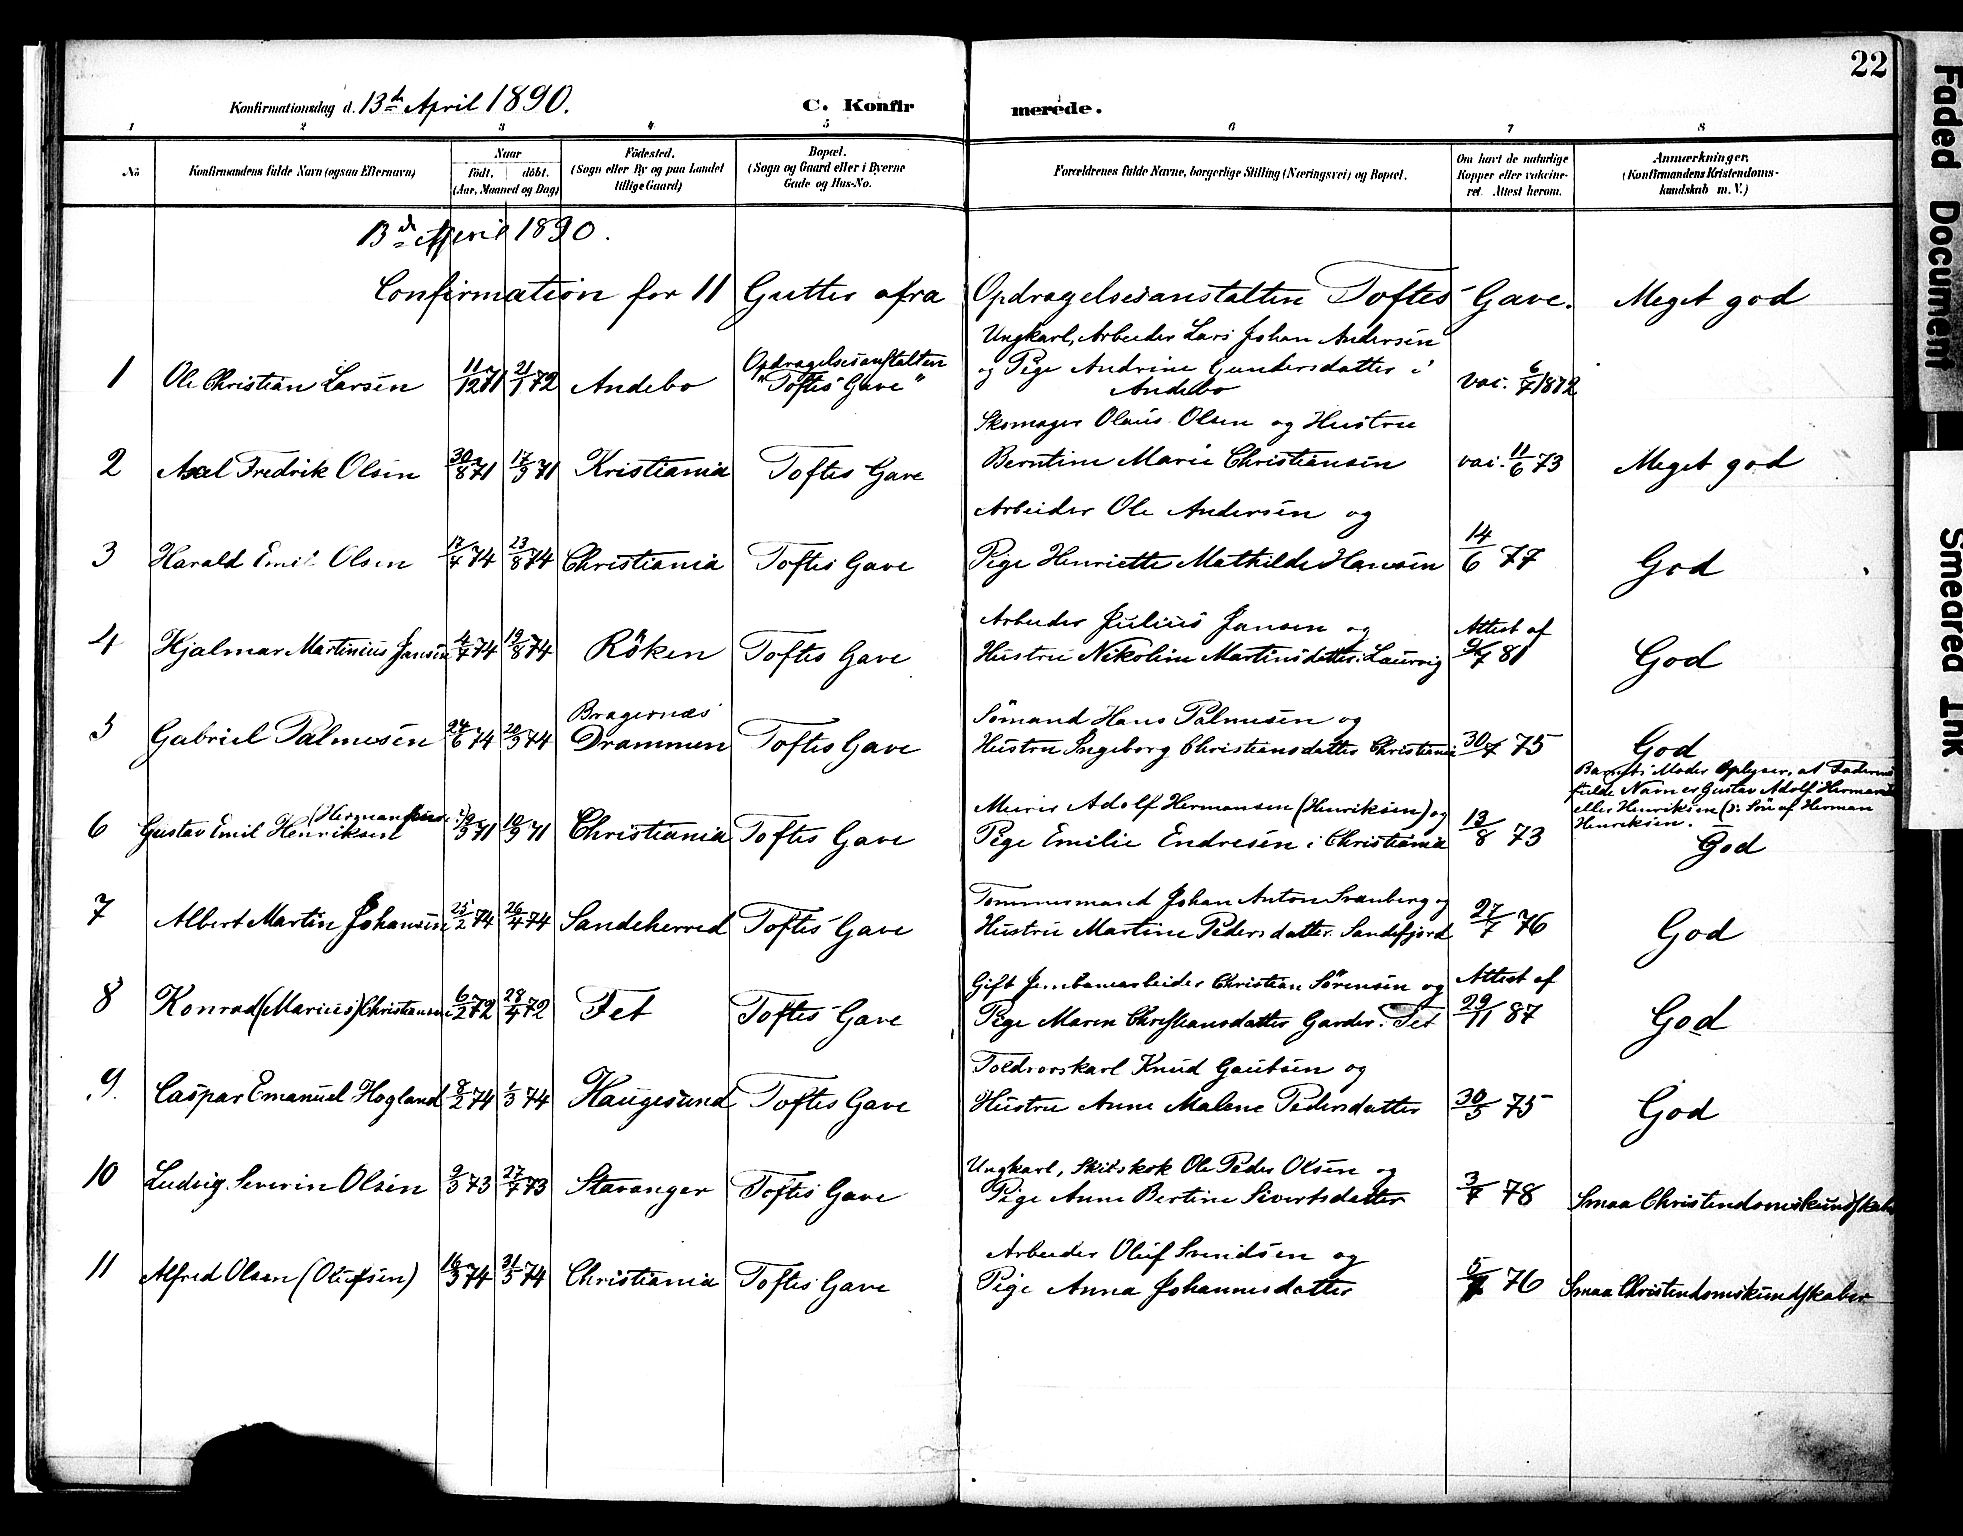 22
Konfirmationsdag d. 13de April 1890. C. Konfirmerede.
1 2 3 4 5 6 7 8
No. Konfirmandens fulde Navn (ogsaa Efternavn) Naar Født. døbt. (Aar, Maaned og Dag) Fødested. (Sogn eller By og paa Landet tillige Gaard) Bopæl. (Sogn og Gaard eller i Byerne Gade og Hus-No. Forældrenes fulde Navne, borgerlige Stilling (Næringsvei) og Bopæl. Om havt de naturlige Kopper eller vaccineret. Attest herom. Anmærkninger. (Konfirmandens Kristendomskundskab m. V.)
13de April 1890.
Confirmation for 11 Gutter ofra Opdragelsesanstalten Toftes Gave. Meget god
1 Ole Christian Larsen 11/12 71 21/1 72 Andebo Opdragelsesanstalten "Toftes Gave" Ungkarl, Arbeider Lars Johan Andersen og Pige Andrine Gundersdatter i Andebo vac. 6/7 1872
2 Axel Fredrik Olsen 30/8 71 17/9 71 Kristiania Toftes Gave Skomager Olaus Olsen og Hustru Berntine Marie Christiansen vac. 11/6 73 Meget god
3 Harald Emil Olsen 17/4 74 23/8 74 Christiania Toftes Gave Arbeider Ole Andersen og Pige Henriette Mathilde Hansen 14/6 77 God
4 Hjalmar Martinius Jansen 4/7 74 19/8 74 Röken Toftes Gave Arbeider Julius Jansen og Hustru Nikoline Martinsdatter. Laurvig Attest af 9/7 81 God
5 Gabriel Palmesen 24/6 74 20/9 74 Bragernæs Drammen Toftes Gave Sömand Hans Palmesen og Hustru Ingeborg Christiansdatter Christiania 30/7 75 God
6 Gustav Emil Henriksen (Hermansen) 10/9 71 Christiania Toftes Gave Murer Adolf Hermansen (Henriksen) og Pige Emilie Endresen i Christiania 13/8 73 Barnets Moder Oplyser, at Faderens fulde Navn er Gustav Adolf Hermansen eller Henriksen (): Sön af Herman Henriksen. God
7 Albert Martin Johansen 25/2 74 26/4 74 Sandeherred Toftes Gave Tommermand Johan Anton Svanberg og Hustru Martine Pedersdatter. Sandefjord 27/7 76 God
8 Konrad (Marius) Christiansen 6/2 72 28/4 72 Fet Toftes Gave Gift Jernbanearbeider Christian Sörensen og Pige Maren Christiansdatter Garder. Fet Attest af 29/11 87 God
9. Caspar Emanuel Hogland 8/2 74 1/3 74 Haugesund Toftes Gave Toldrorskarl Knud Gautsen og Hustru Anne Malene Pedersdatter 30/5 75 God
10 Ludvig Severin Olsen 9/3 73 27/7 73 Stavanger Toftes Gave Ungkarl, Skibskok Ole Peder Olsen og Pige Anne Bertine Sivertsdatter 3/7 78 Smaa Christendomskundskaber
11 Alfred Olsen (Olufsen) 16/3 74 31/5 74 Christiania Toftes Gave Arbeider Oluf Svendsen og Pige Anna Johannesdatter 76 Smaa Christendomskundskaber
Faded Document
Smeared Ink.